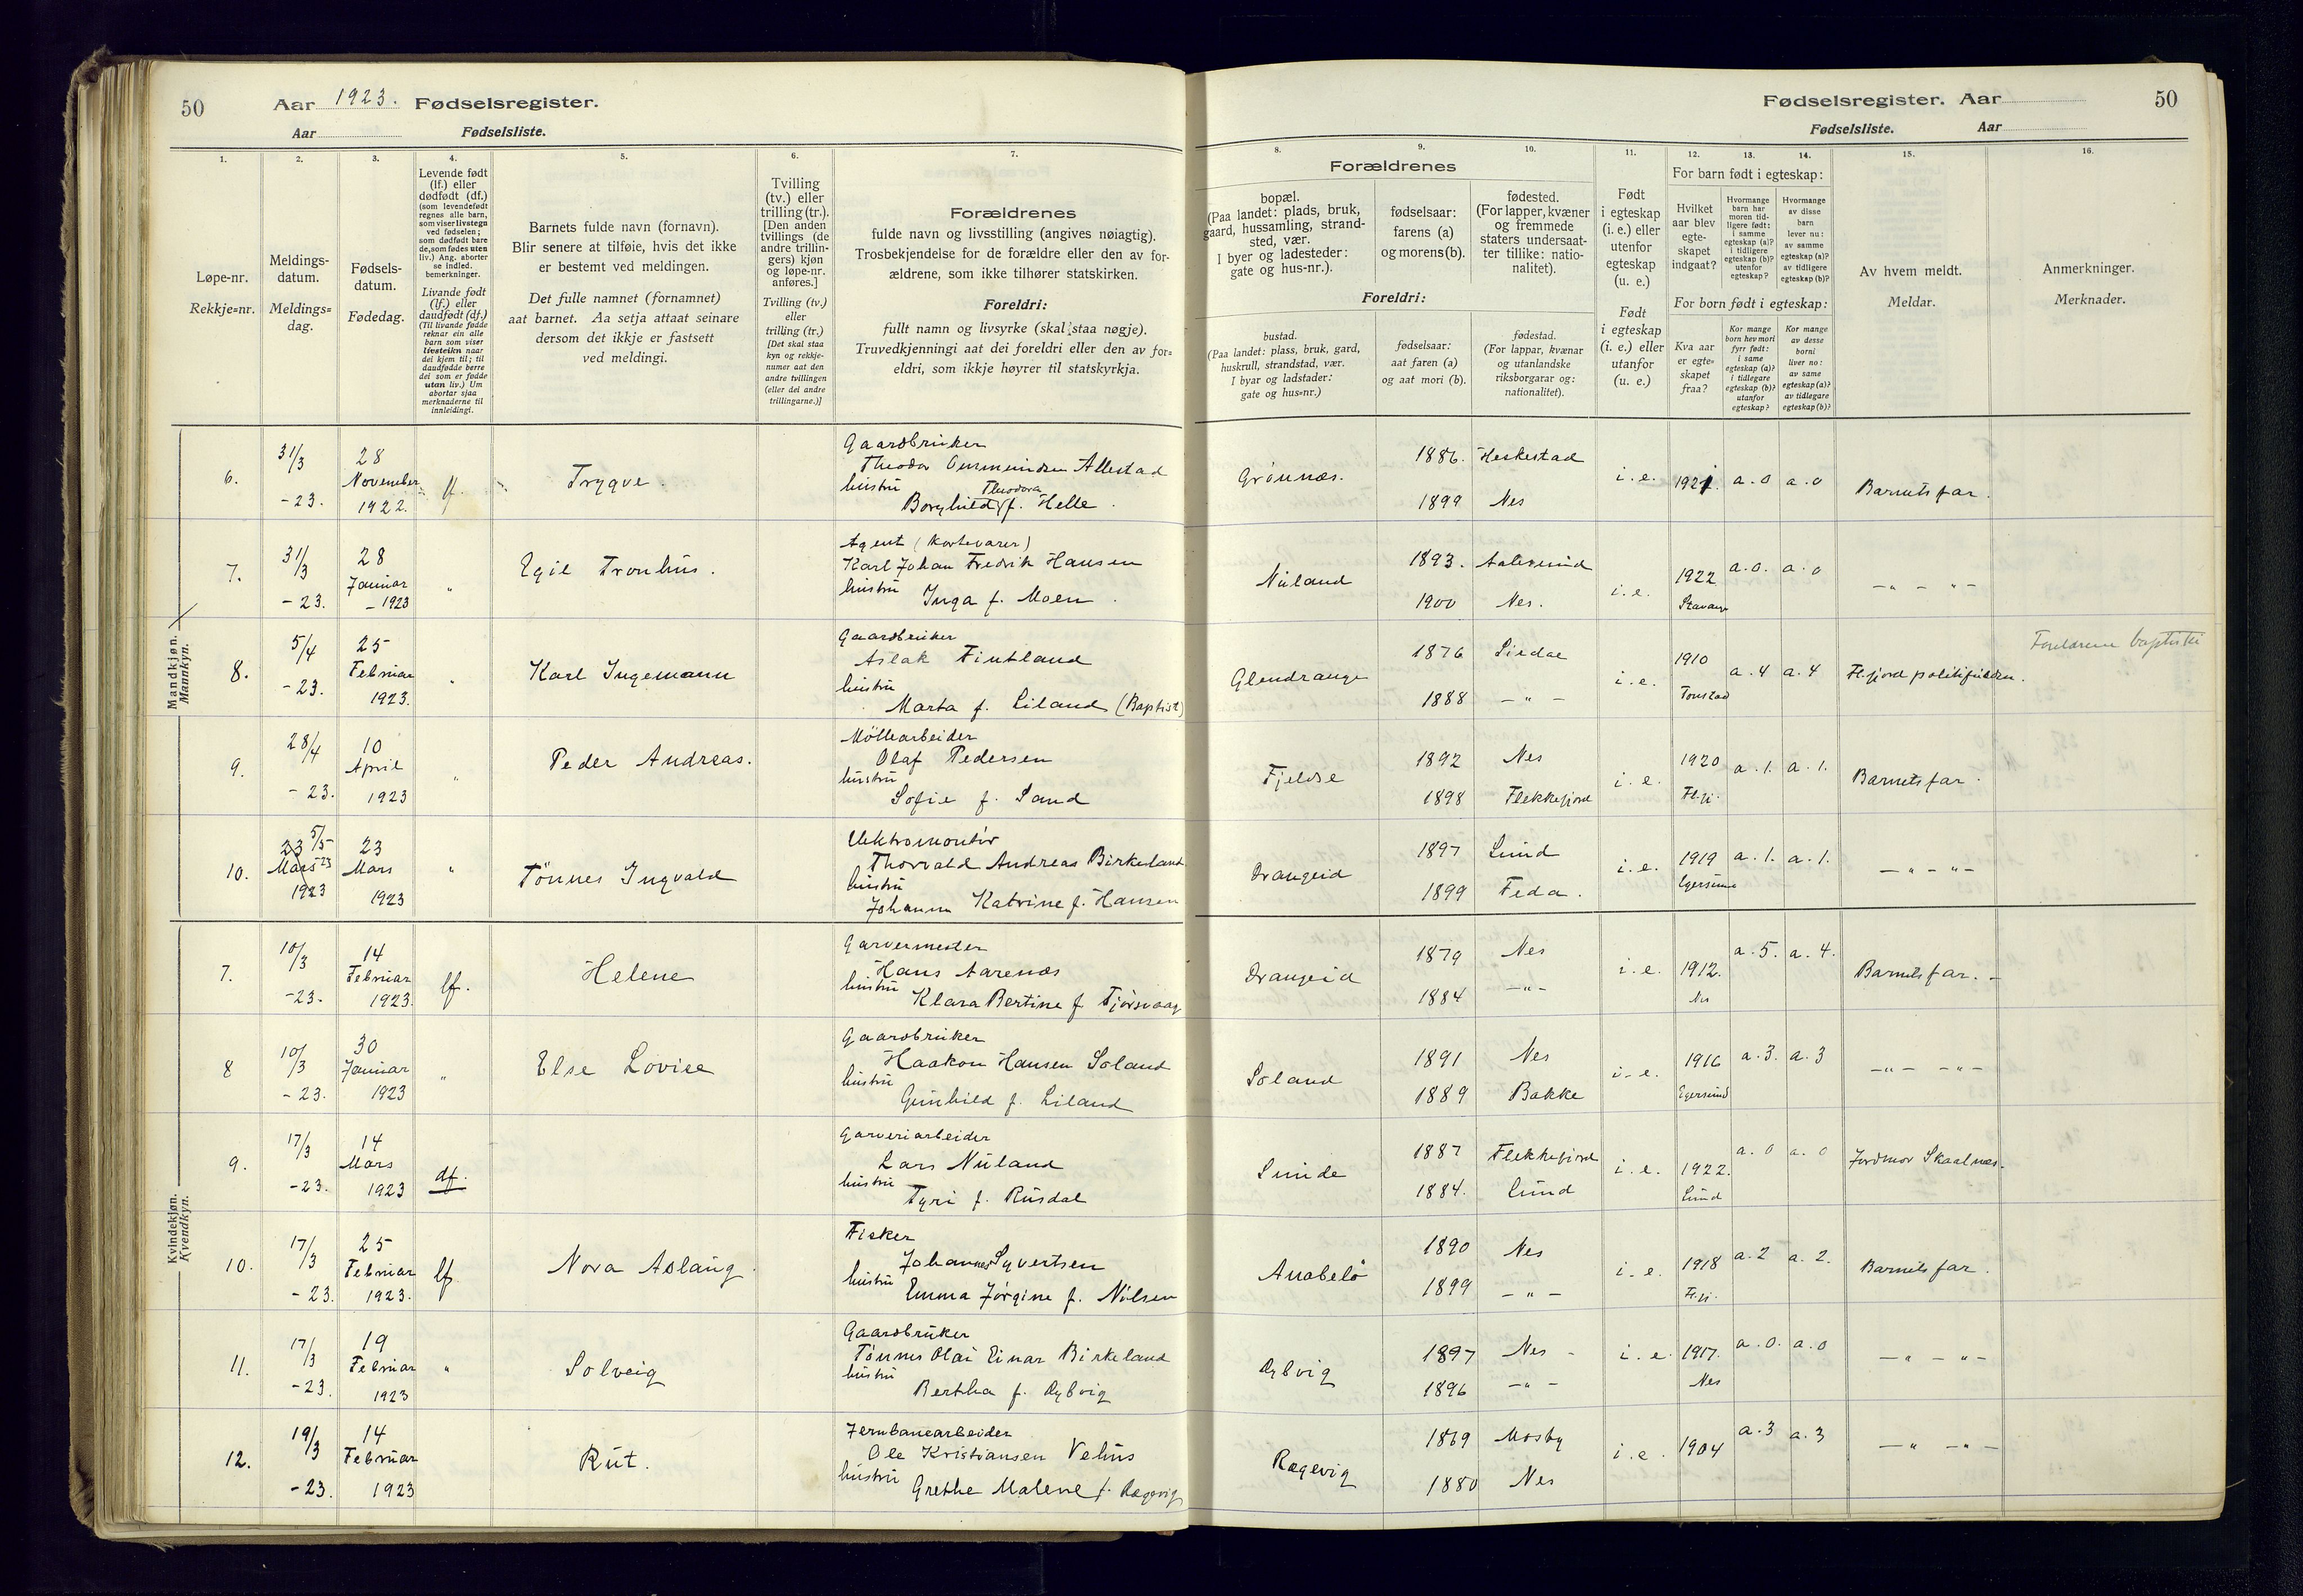 50
Aar 1923. Fødselsregister.
Aar Fødselsliste.
1.
2.
3.
4.
5.
6.
7.
Løpe-nr.
Rekkje=nr.
Meldings-
datum.
Meldings=
dag.
Fødsels-
datum.
Fødedag.
Levende født
(lf.) eller
dødfødt (df.)
(som levendefødt
regnes alle barn,
som viser livstegn
ved fødselen;
som dødfødt bare
de, som fødes uten
liv.) Ang. aborter
se indled.
bemerkninger.
Livande født
(lf.) eller
daudfødt (df.)
(Til livande fødde
reknar ein alle
barn som viser
livsteikn naar
dei kjem til; til
daudfødde berre
dei som er fødde
utan liv.) Um
abortar sjaa
merknaderne til
innleidingi.
Barnets fulde navn (fornavn).
Blir senere at tilføie, hvis det ikke
er bestemt ved meldingen.
Det fulle namnet (fornamnet)
aat barnet. Aa setja attaat seinare
dersom det ikkje er fastsett
ved meldingi.
Tvilling
(tv.) eller
trilling (tr.).
[Den anden
tvillings (de
andre trillin-
gers) kjøn
og løpe-nr.
anføres.]
Tvilling (tv.)
eller
trilling (tr.)
[Det skal staa
kyn og rekkje-
numer aat den
andre tvillingen
(eller dei andre
trillingarne.)]
Forældrenes
fulde navn og livsstilling (angives nøiagtig).
Trosbekjendelse for de forældre eller den av for-
ældrene, som ikke tilhører statskirken.
Foreldri:
fullt namn og livsyrke (skal staa nøgje).
Truvedkjenningi aat dei foreldri eller den av for=
eldri, som ikkje høyrer til statskyrkja.
Fødselsregister. Aar
50
Fødselsliste. Aar
8.
9.
10.
11.
12.
13.
14.
15.
16.
Forældrenes
bopæl.
(Paa landet: plads, bruk,
gaard, hussamling, strand-
sted, vær.
I byer og ladesteder:
gate og hus-nr.).
fødselsaar:
farens (a)
og morens (b).
fødested.
(For lapper, kvæner
og fremmede
staters undersaat-
ter tillike: natio-
nalitet).
Foreldri:
bustad.
(Paa landet: plass, bruk, gard,
huskrull, strandstad, vær.
I byar og ladstader:
gate og hus=nr.)
fødselsaar:
aat faren (a)
og aat mori (b).
fødestad.
(For lappar, kvænar
og utanlandske
riksborgarar og:
nationalitet).
Født
i egteskap
(i. e.) eller
utenfor
egteskap
(u. e.)
Født
i egteskap
(i. e.) eller
utanfor
(u. e.)
For barn født i egteskap:
Hvilket
aar blev
egte-
skapet
indgaat?
Hvormange
barn har
moren tid-
ligere født:
i samme
egteskap (a)?
i tidligere
egteskap (b)?
utenfor
egteskap?
Hvormange
av disse
barn
lever nu:
av samme
egteskap (a)?
av tidligere
egteskap (b)?
For born født i egteskap:
Kva aar
er egte=
skapet
fraa?
Kor mange
born hev mori
fyrr født:
i same
egteskap (a)?
i tidlegare
egteskap (b)?
utanfor
egteskap?
Kor mange
av desse
borni
liver no:
av same
egteskap (a)?
av tidlegare
egteskap (b)?
Av hvem meldt.
Meldar.
Anmerkninger.
Merknader.
Mandkjøn.
Mannkyn.
6. 31/3 -23. 28 November 1922. lf. Trygve.
Gaardbruker
Theodor Ommundsen Allestad
hustru Borghild Theodora f. Helle.
Grønnæs. 1886. Heskestad 1899 Nes i. e. 1921. a. 0 a. 0 Barnets far.
7. 31/3 -23. 28 Januar -1923 " Egil Tronhus.
Agent (kortevarer)
Karl Johan Fredrik Hansen
hustru Inga f. Moen.
Nuland 1893. Aalesund 1900 Nes. i. e. 1922 Stavanger a. 0. a. 0 -"- "-
8. 5/4 -23. 25 Februar 1923. " Karl Ingemann
Gaardbruker
Aslak Fintland
hustru
Marta f. Liland (Baptist)
Glendrange 1876 Siedal 1888 -"- i. e. 1910 Tonstad a. 4 a. 4 Fl.fjord politi Foreldrene baptister
9. 28/4 -23. 10 April 1923 " Peder Andreas.
Möllearbeider
Olaf Pedersen
hustru
Sofie f. Sand
Fjeldse 1892 Nes 1898 Flekkefjord i. e. 1920 Fl.fj. a. 1. a. 1. Barnets far.
10. 23 Mars 1923 5/5 23 23 Mars 1923 " Tönnes Ingvald
Elektromontör
Thorvald Andreas Birkeland
hustru
Johanne Katrine f. Hansen
Drangeid 1897 Lund 1899 Feda. i. e. 1919 Egersund a. 1. a. 1. -"-"-
Kvindekjøn.
Kvendkyn.
7. 10/3 -23. 14 Februar 1923. lf. Helene
Garvermester
Hans Aarenæs
hustru Klara Bertine f. Tjörsvaag
Drangeid 1879 Nes 1884 -"- i. e. 1912. Nes a. 5. a. 4. Barnets far.
8 10/3 -23. 30 Januar 1923 " Else Lovise
Gaardbruker
Haakon Hansen Soland
hustru
Gunhild f. Liland
Soland 1891 Nes 1889 Bakke i. e. 1916 Egersund a. 3. a. 3 -"- -"-
9. 17/3 -23. 14 Mars 1923 df.
Garveriarbeider
Lars Nuland
hustru Tyri f. Rusdal
Sunde 1887 Flekkefjord 1884. Lund i. e. 1922. Lund a. 0 a. 0 Jordmor Skaalnæs.
10. 17/3 -23. 25 Februar 1923. lf. Nora Aslaug
Fisker
Johannes Syvertsen
hustru Emma Jörgine f. Nilsen
Anabelö 1890 Nes 1899 -"- i. e. 1918 Fl.fj. a. 2 a. 2. Barnets far.
11. 17/3 -23. 19 Februar 1923 " Solveig
Gaardbruker
Tönnes Olai Einar Birkeland
hustru
Bertha f. Dybvig
Dybvig 1897 Nes 1896 -"- i. e. 1917. Nes a. 0. a. 0 -"-"-
12. 19/3 -23. 14 Februar 1923 Rut.
Jernbanearbeider
Ole Kristiansen Vehus
hustru
Grethe Malene f. Rægevig
Rægevig 1869 Mosby 1880 Nes i. e. 1904 a. 3 a. 3 -" -"-